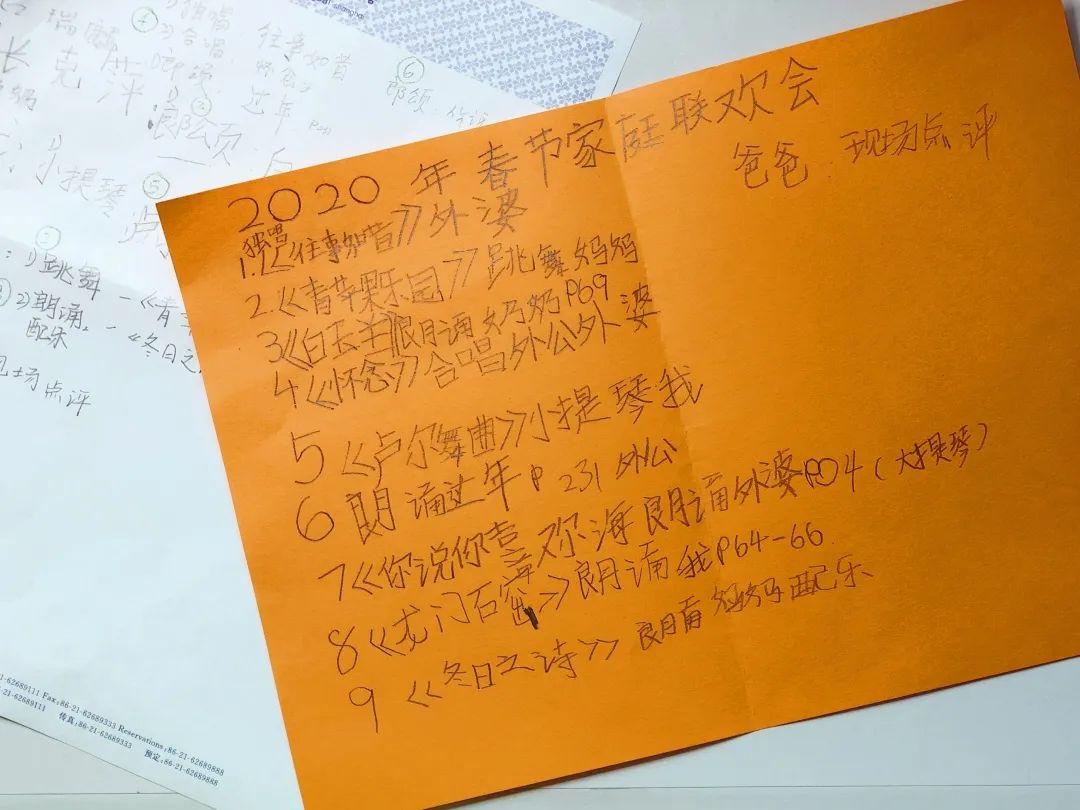 2020年春节家庭联欢会
爸爸 现场点评
独唱
1.《往事如昔》外婆
2.《青苹果乐园》跳舞妈妈
3《白玉羊》朗诵奶奶P69
4《怀念》合唱外公外婆
5《卢尔舞曲》小提琴我
6朗诵过年P231外公
7《你说你喜欢海朗诵外婆P04(大提琴)
8《龙门石窟》朗诵我P64-66.
9《冬日之诗》朗诵妈妈配乐
④1)独唱:往事如昔
2)合唱:怀念
朗诵:过年
⑥
朗颂.
克萍
小提琴
⑤
③
:1)跳舞-《青
2)朗诵.-《冬日之
配乐
场点评
Fax:86-21-62689333 Reservations:86-21-62689888
传真:86-21-62689333 预定:86-21-62689888